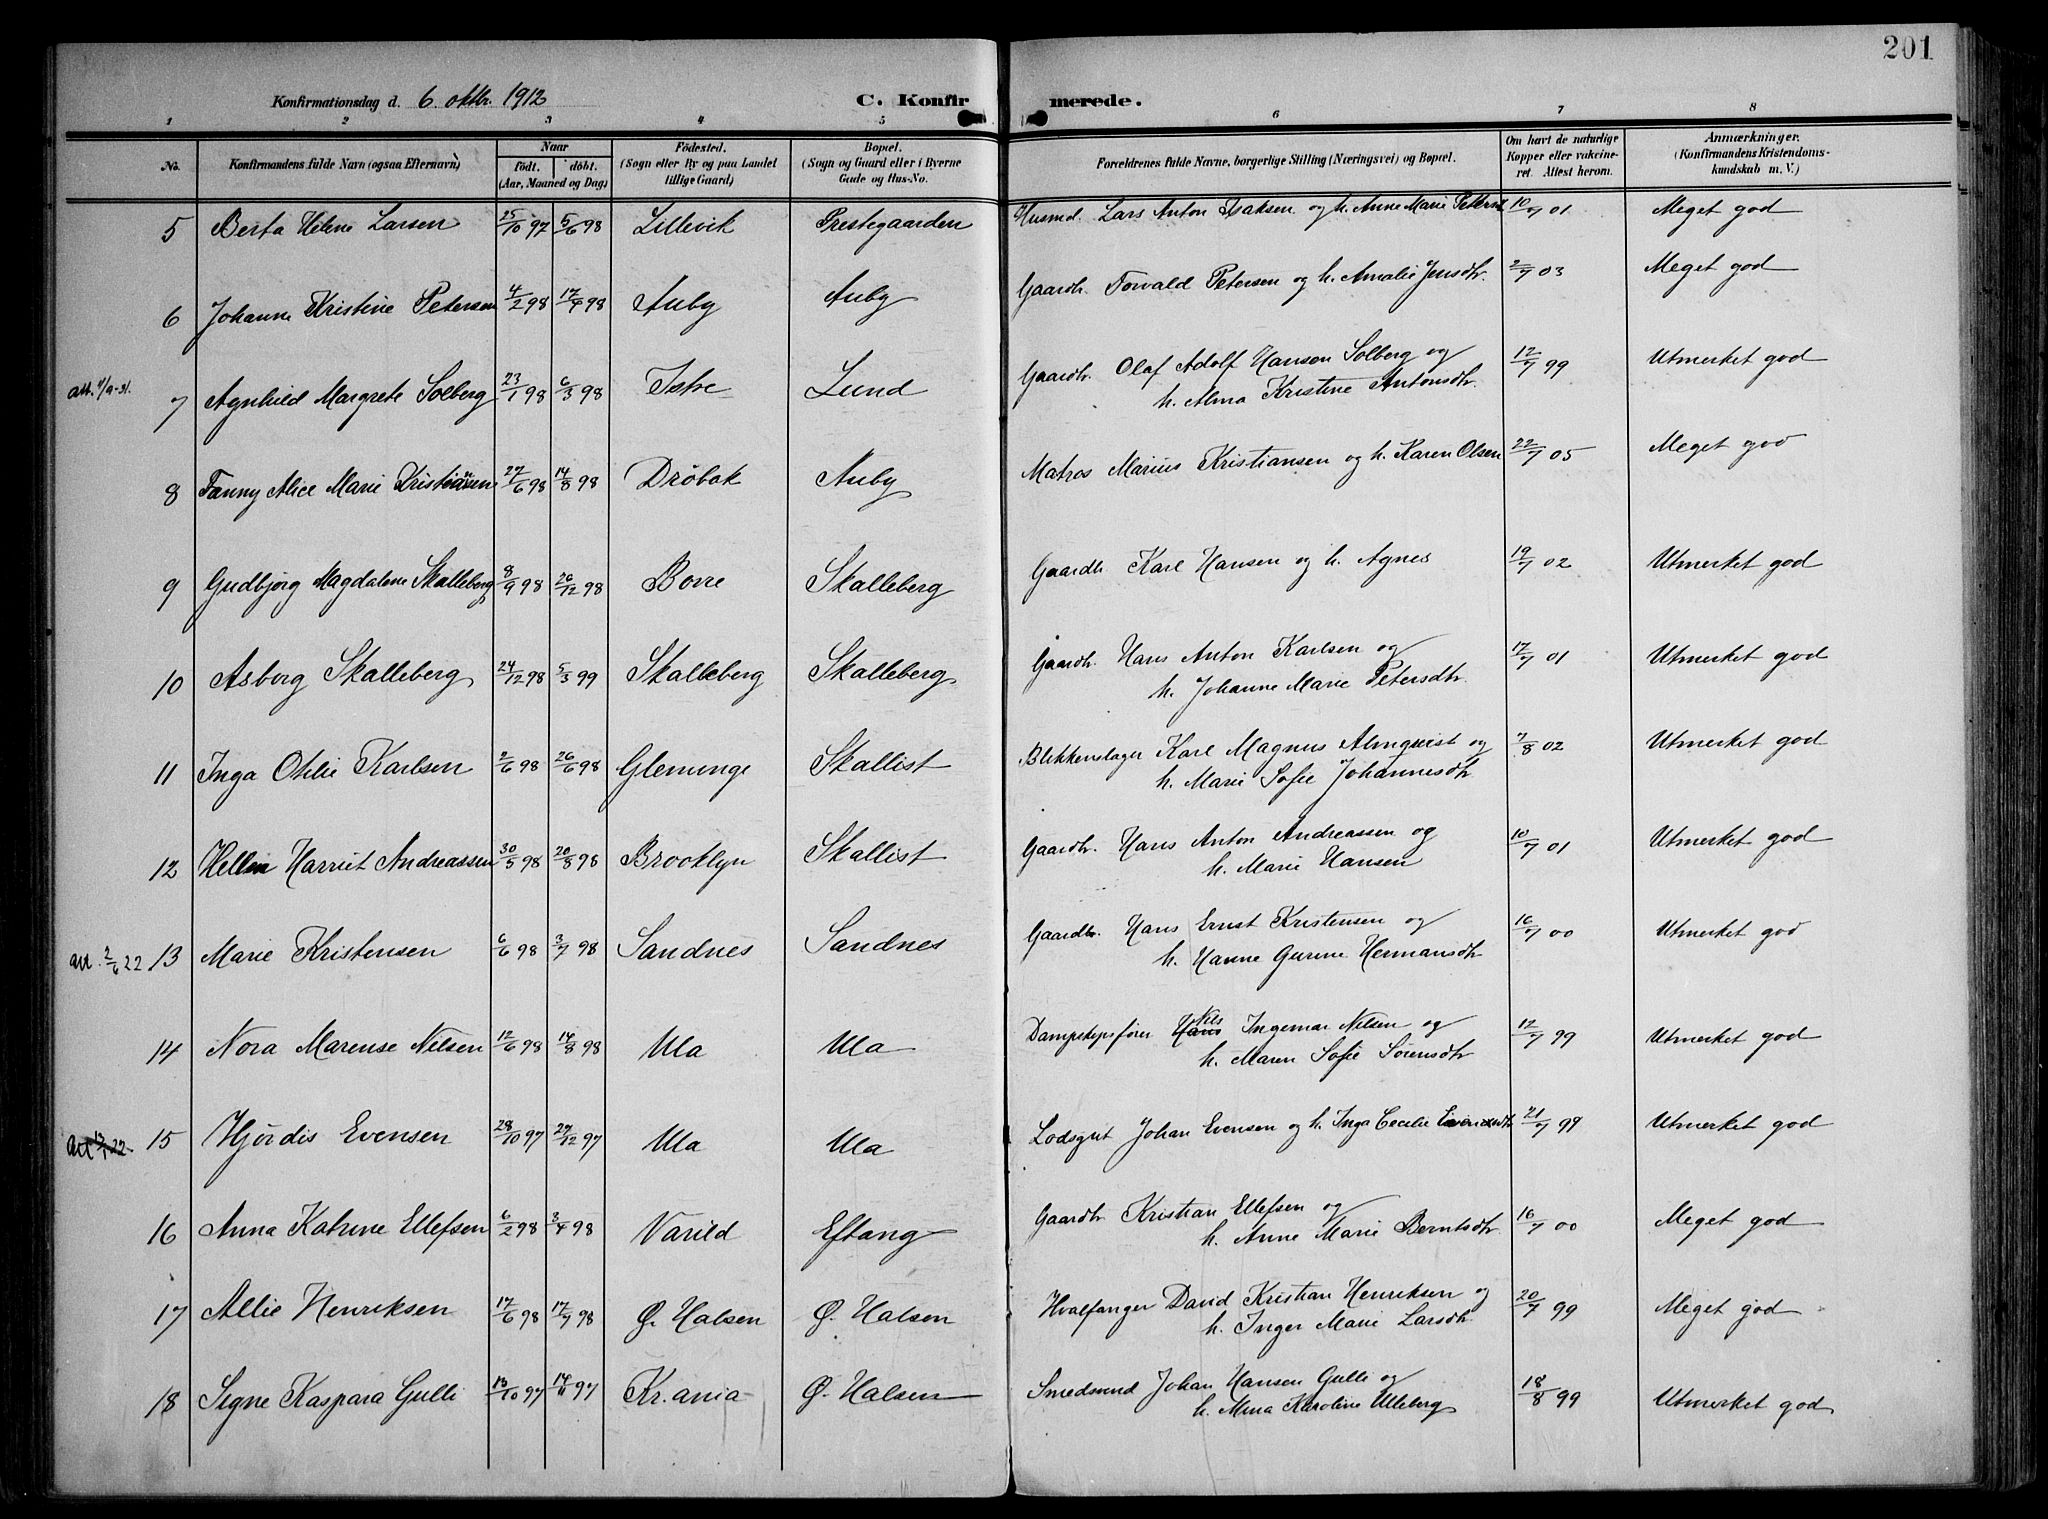 201
Konfirmationsdag d. 6. oktbr. 1912 C. Konfirmerede.
1 2 3 4 5 6 7 8
No. Konfirmandens fulde Navn (ogsaa Efternavn) Naar født. døbt. (Aar, Maaned og Dag) Fødested. (Sogn eller By og paa Landet tillige Gaard) Bopæl. (Sogn og Gaard eller i Byerne Gade og Hus-No. Forældrenes fulde Navne, borgerlige Stilling (Næringsvei) og Bopæl. Om havt de naturlige Kopper eller vakcineret. Attest herom. Anmærkninger. (Konfirmandens Kristendomskundskab m. V.)
5 Berta Helene Larsen 25/10 97 5/6 98 Lillevik Prestegaarden Husmd. Lars Anton Isaksen og h. Anne Marie Peters 10/7 01 Meget god
6 Johanne Kristine Petersen 4/2 98 17/4 98 Auby Auby Gaardbr. Torvald Petersen og h. Amalie Jensdtr. 2/7 03 Meget god
7 Agnhild Margrete Solberg 23/1 98 6/3 98 Istre Lund Gaardbr. Olaf Adolf Hansen Solberg og 12/7 99 Utmerket god
h. Alma Kristine Antonsdtr.
8 Fanny Alice Marie Kristiansen 27/6 98 14/8 98 Drøbak Auby Matros Marius Kristiansen og h. Karen Olsen 22/7 05 Meget god
9 Gudbjørg Magdalene Skalleberg 8/9 98 26/12 98 Borre Skalleberg Gaardbr. Karl Hansen og h. Agnes 19/7 02 Utmerket god
10 Asborg Skalleberg 24/12 98 5/3 99 Skalleberg Skalleberg Gaardbr. Hans Anton Karlsen og 17/7 01 Utmerket god
h. Johanne Marie Petersdtr.
11 Inga Otilie Karlsen 2/6 98 26/6 98 Gleminge Skallist Blikkenslager Karl Magnus Almqvist og 7/8 02 Utmerket god
h. Marie Sofie Johannesdtr
12 Hellen Harriet Andreassen 30/5 98 20/8 98 Brooklyn Skallist Gaardbr. Hans Anton Andreassen og 10/7 01 Utmerket god
h. Marie Hansen
att. 2/6 22 13 Marie Kristensen 6/6 98 3/7 98 Sandnes Sandnes Gaardbr. Hans Ernst Kristensen og 16/7 00 Utmerket god
h. Hanne Gurine Hermansdtr
14 Nora Marense Nilsen 12/6 98 14/8 98 Ula Ula Dampskypsfører Hans Nils Ingemar Nilsen og 12/7 99 Utmerket god
h. Maren Sofie Sørensdtr
15 Hjørdis Evensen 28/10 97 27/12 97 Ula Ula Lodsgut Johan Evensen og h. Inga Cecilie 21/7 99 Utmerket god
16 Anna Katrine Ellefsen 6/2 98 3/4 98 Varild Eftang Gaardbr Kristian Ellefsen og 16/7 00 Meget god
h. Anne Marie Berntsdtr.
17 Allie Henriksen 17/6 98 17/7 98 Ø. Halsen Ø. Halsen Hvalfanger David Kristian Henriksen og 20/7 99 Meget god
h. Inger Marie Larsdtr.
18 Signe Kaspara Gulli 13/10 97 14/11 97 Kr.ania Ø. Halsen Smedsvend Johan Hansen Gulli og 18/8 99 Utmerket god
h. Mina Karoline Ulleberg